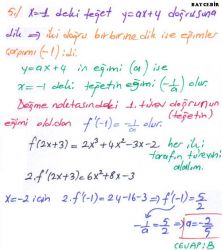 BAYCEBİR
5) x=-1 deki teğet y=ax+4 doğrusuna
dik ⇒ iki doğru birbirine dik ise eğimler
çarpımı (-1) 'dir.
y=ax+4 ün eğimi (a) ise
x=-1 deki teğetin eğimi (-1/a) olur.
Değme noktasındaki 1. türev doğrunun
(teğetin)
eğimi old.dan f'(-1) = -1/a olur.
f(2x+3) = 2x³+4x²-3x-2 her iki
tarafın türevini
alalım.
2.f'(2x+3)=6x²+8x-3
x=-2 için 2.f'(-1)=24-16-3 ⇒ f'(-1)=5/2
-1/a = 5/2 ⇒ a=-2/5
CEVAP: B